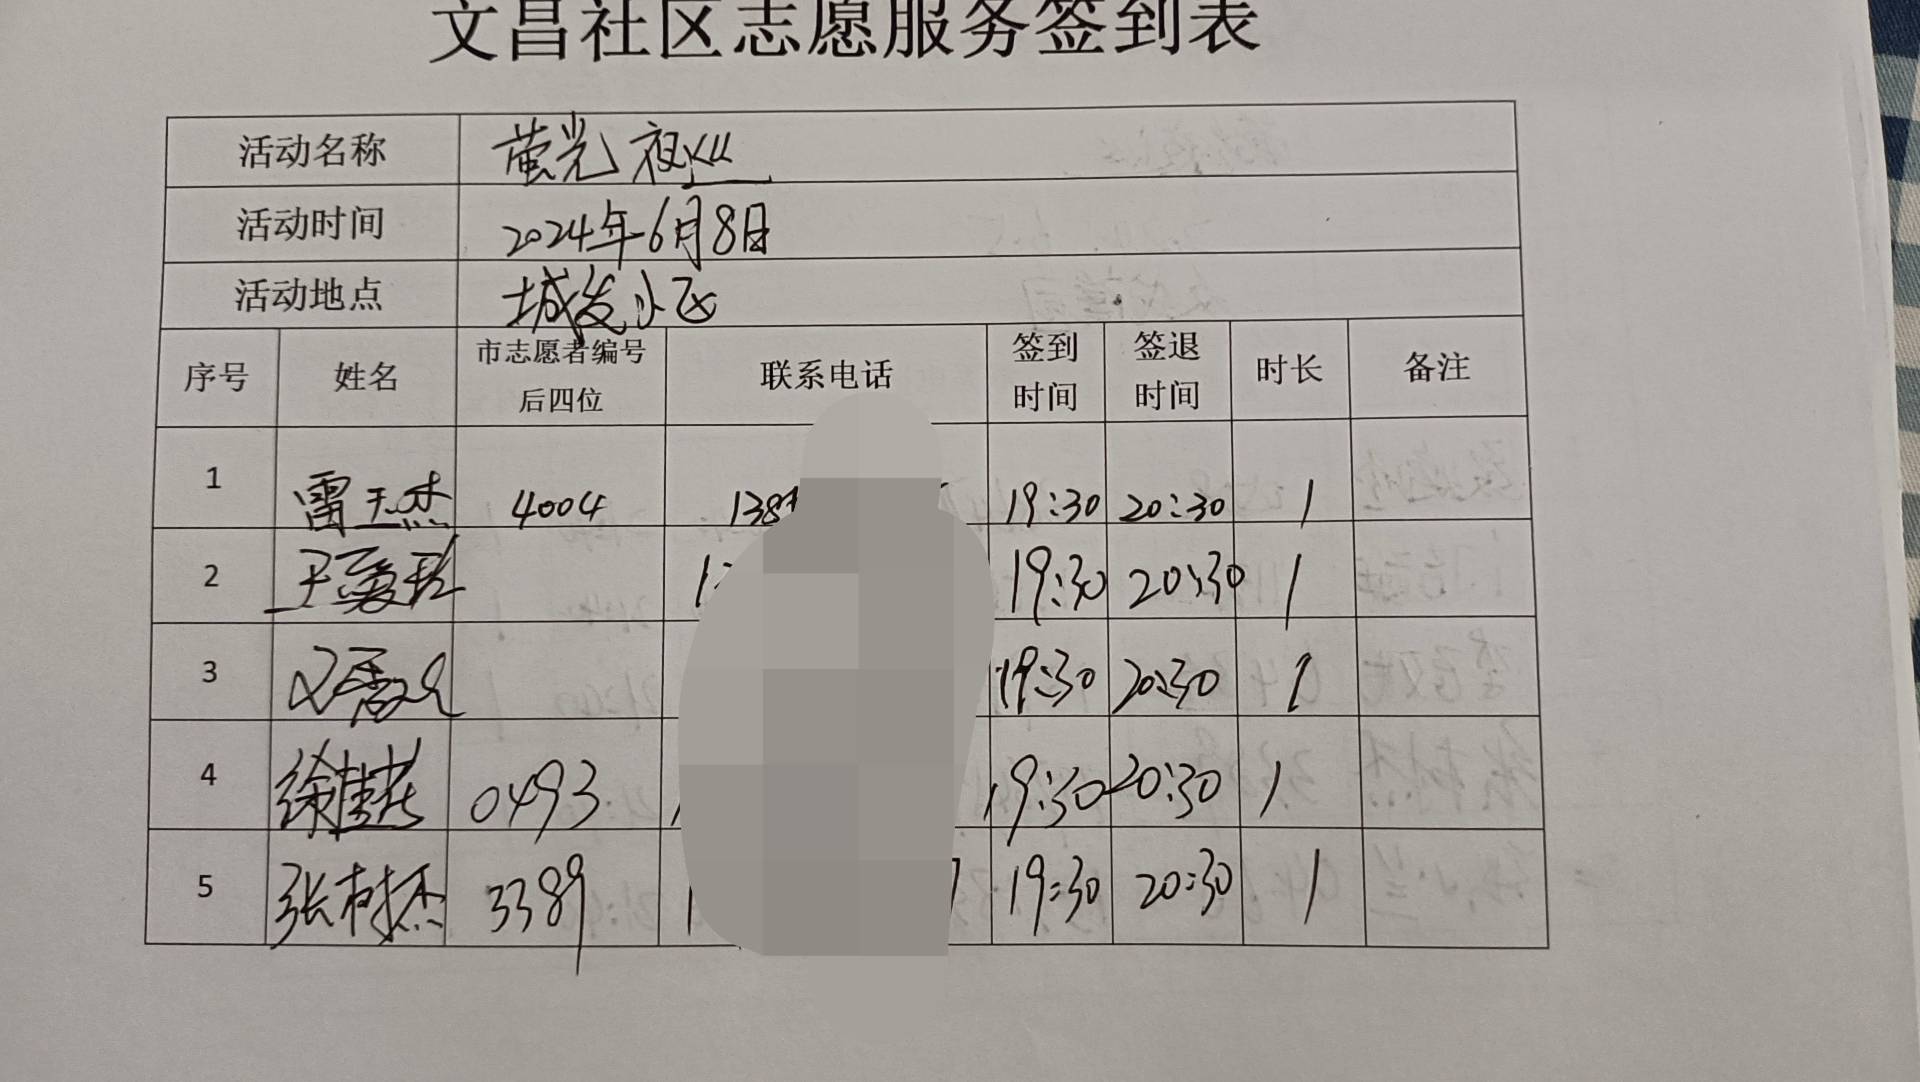 文昌社区志愿服务签到表
活动名称 萤光夜巡
活动时间 2024年6月8日
活动地点 城发小区
序号 姓名 市志愿者编号后四位 联系电话 签到时间 签退时间 时长 备注
1 雷天杰 4004 138 19:30 20:30 1
2 王爱珍 19:30 20:30 1
3 19:30 20:30 1
4 徐桂花 0493 19:30 20:30 1
5 张树杰 3389 19:30 20:30 1